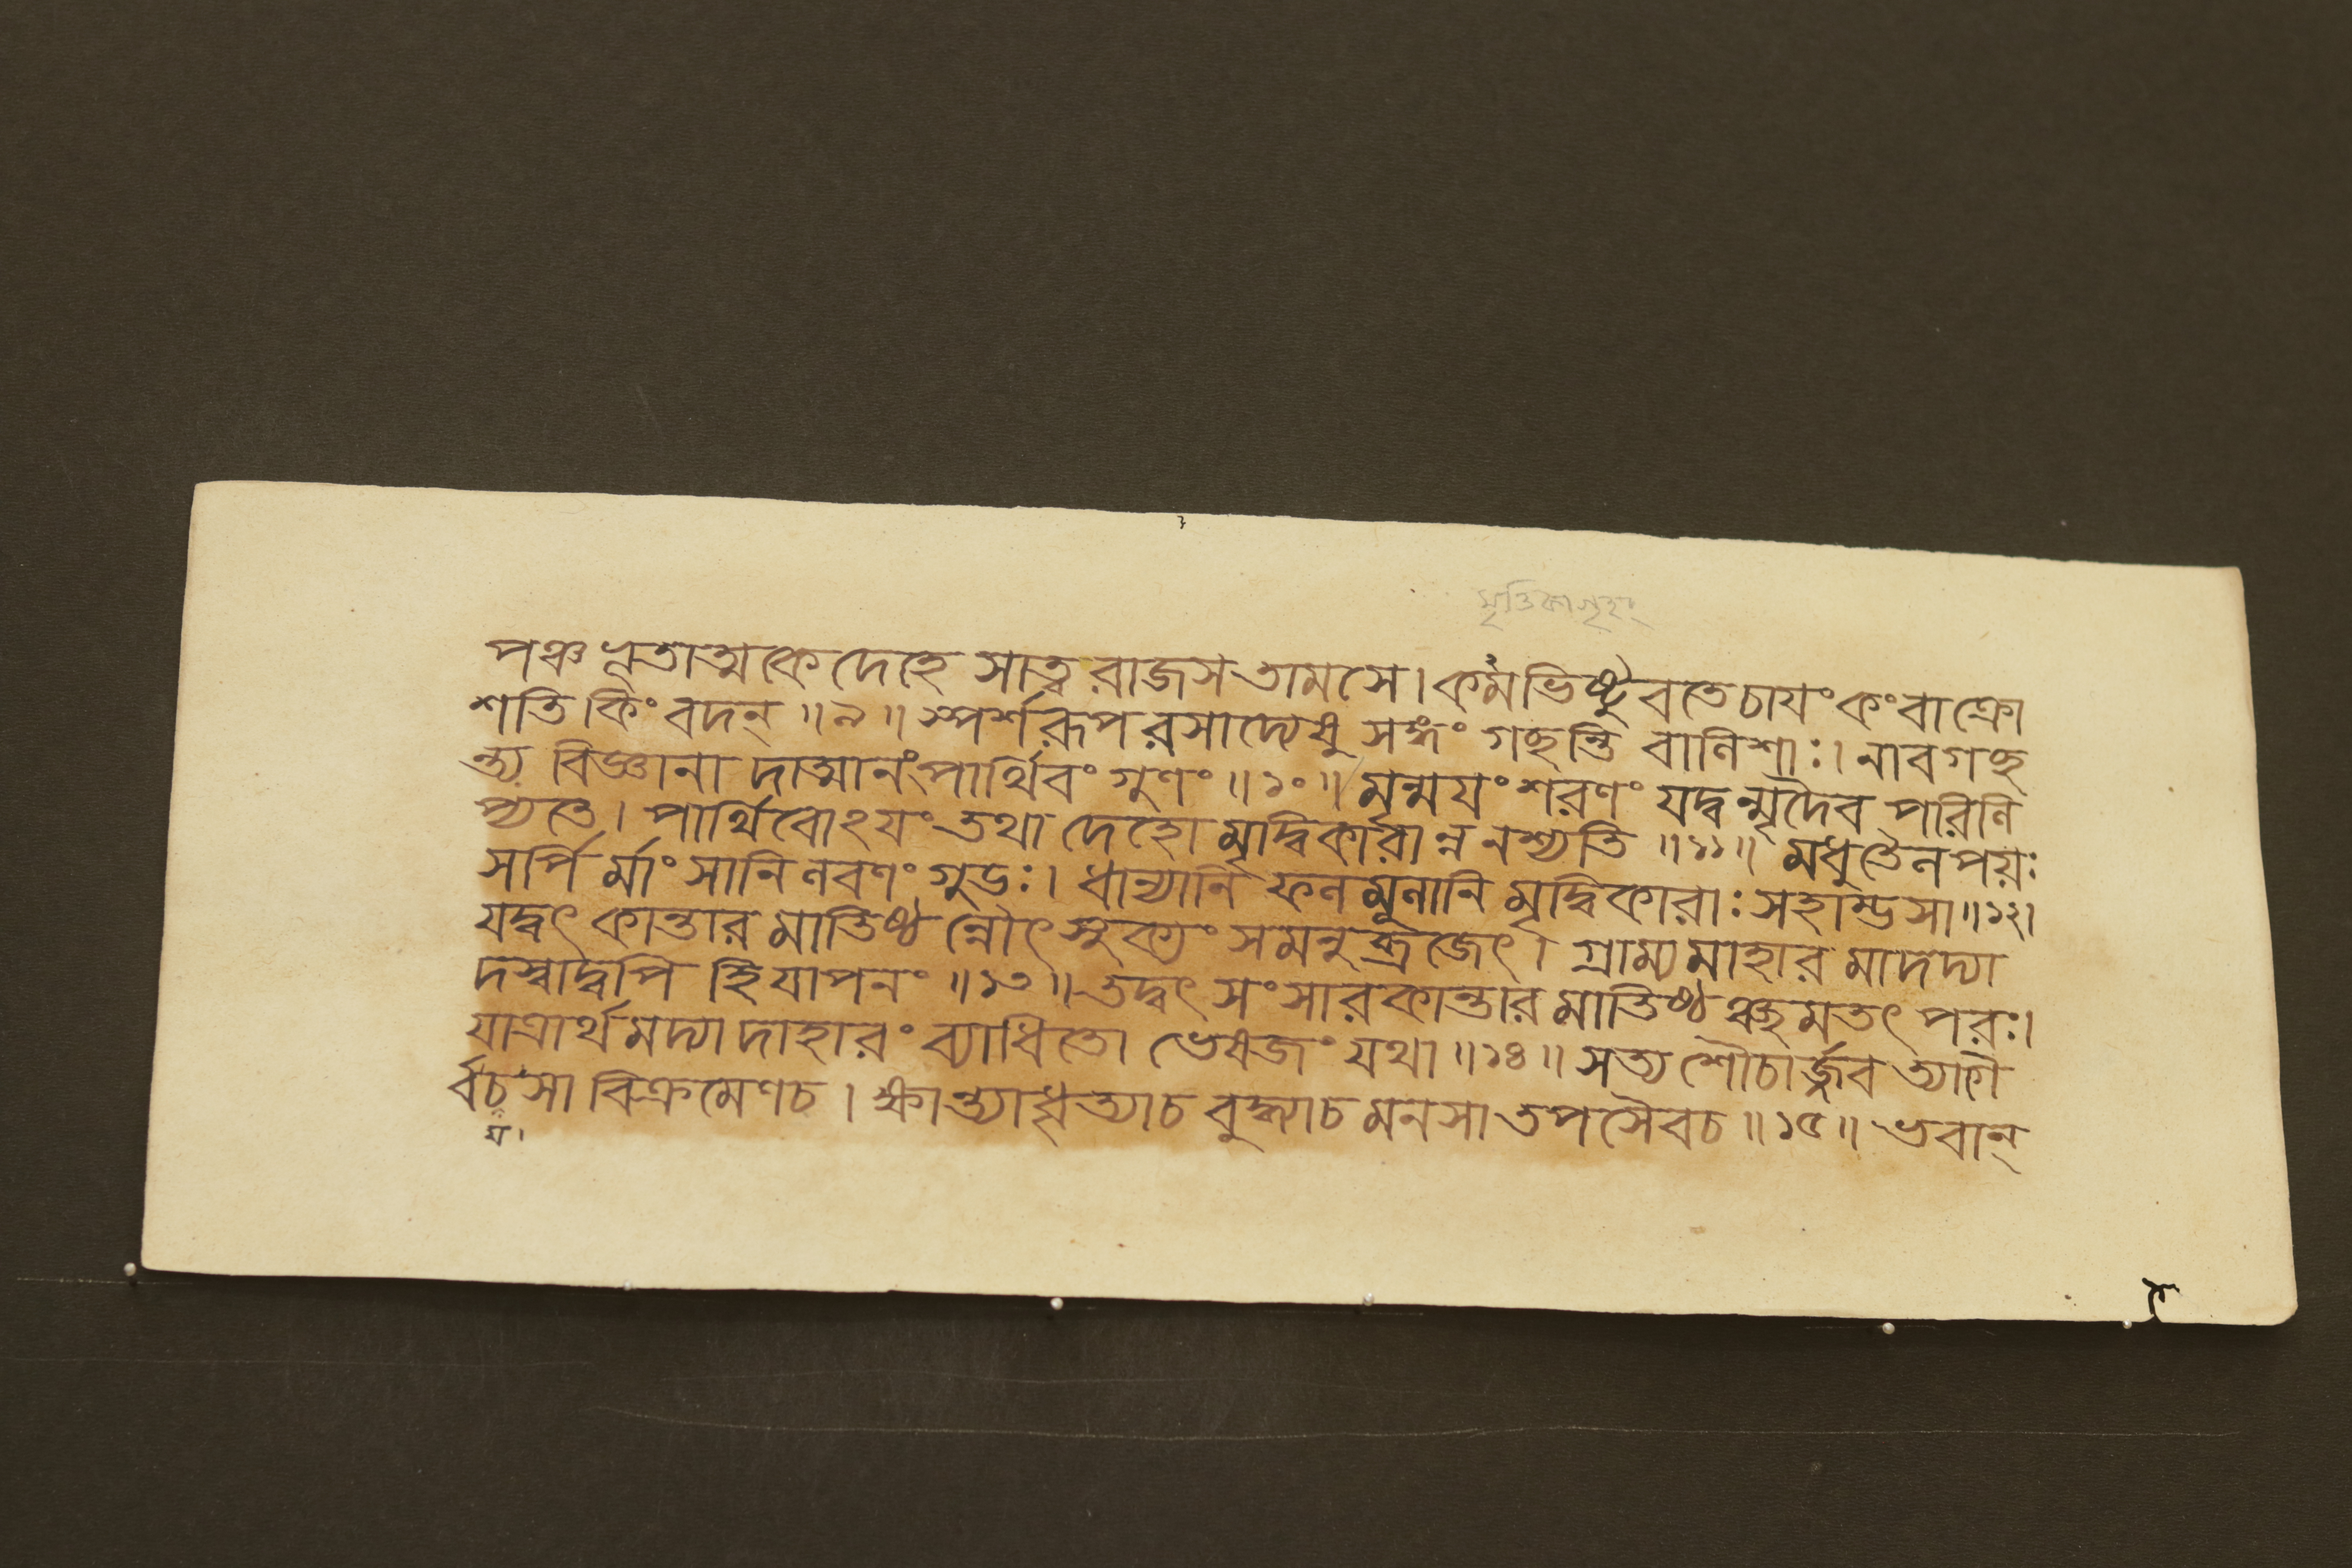 মৃত্তিকাগৃহং
পঞ্চভূতাত্মকে দেহে সাত্ত্বরাজসতামসে। কর্মভিষ্টুবতে চাযং কং বা ক্রো
শতি কিং বদন্ ॥৯॥ স্পর্শরূপরসাদ্যেষু সঙ্গং গচ্ছন্তি বালিশাঃ। নাবগচ্ছ
ন্ত্য বিজ্ঞানাদাত্মানং পার্থিবং গুণং ॥১০॥ মৃন্ময়ং শরণং যদ্বন্মৃদৈব পরিলি
প্যতে। পার্থিবোঽযং তথা দেহো মৃদ্বিকারান্ন নশ্যতি ॥১১॥ মধু তৈল পয়ঃ
সর্পি র্মাংসানি লবণং গুডঃ। ধান্যানি ফলমূলানি মৃদ্বিকারাঃ সহাম্ভসা ॥১২।
যদ্বৎ কান্তারমাতিষ্ঠন্নৌৎসুক্যং সমনুব্রজেৎ। গ্রাম্যমাহারমাদদ্যা
দস্বাদ্বপি হি যাপনং ॥১৩॥ তদ্বৎ সংসারকান্তারমাতিষ্ঠঞ্ছ্রমতৎপরঃ।
যাত্রার্থমদ্যাদাহারং ব্যাধিতো ভেষজং যথা ॥১৪॥ সত্যশৌচার্জ্জবত্যাগৈ
র্বচসা বিক্রমেণ চ। ক্ষান্ত্যা ধৃত্যা চ বুদ্ধ্যা চ মনসা তপসৈব চ ॥১৫॥ ভবান্
য।